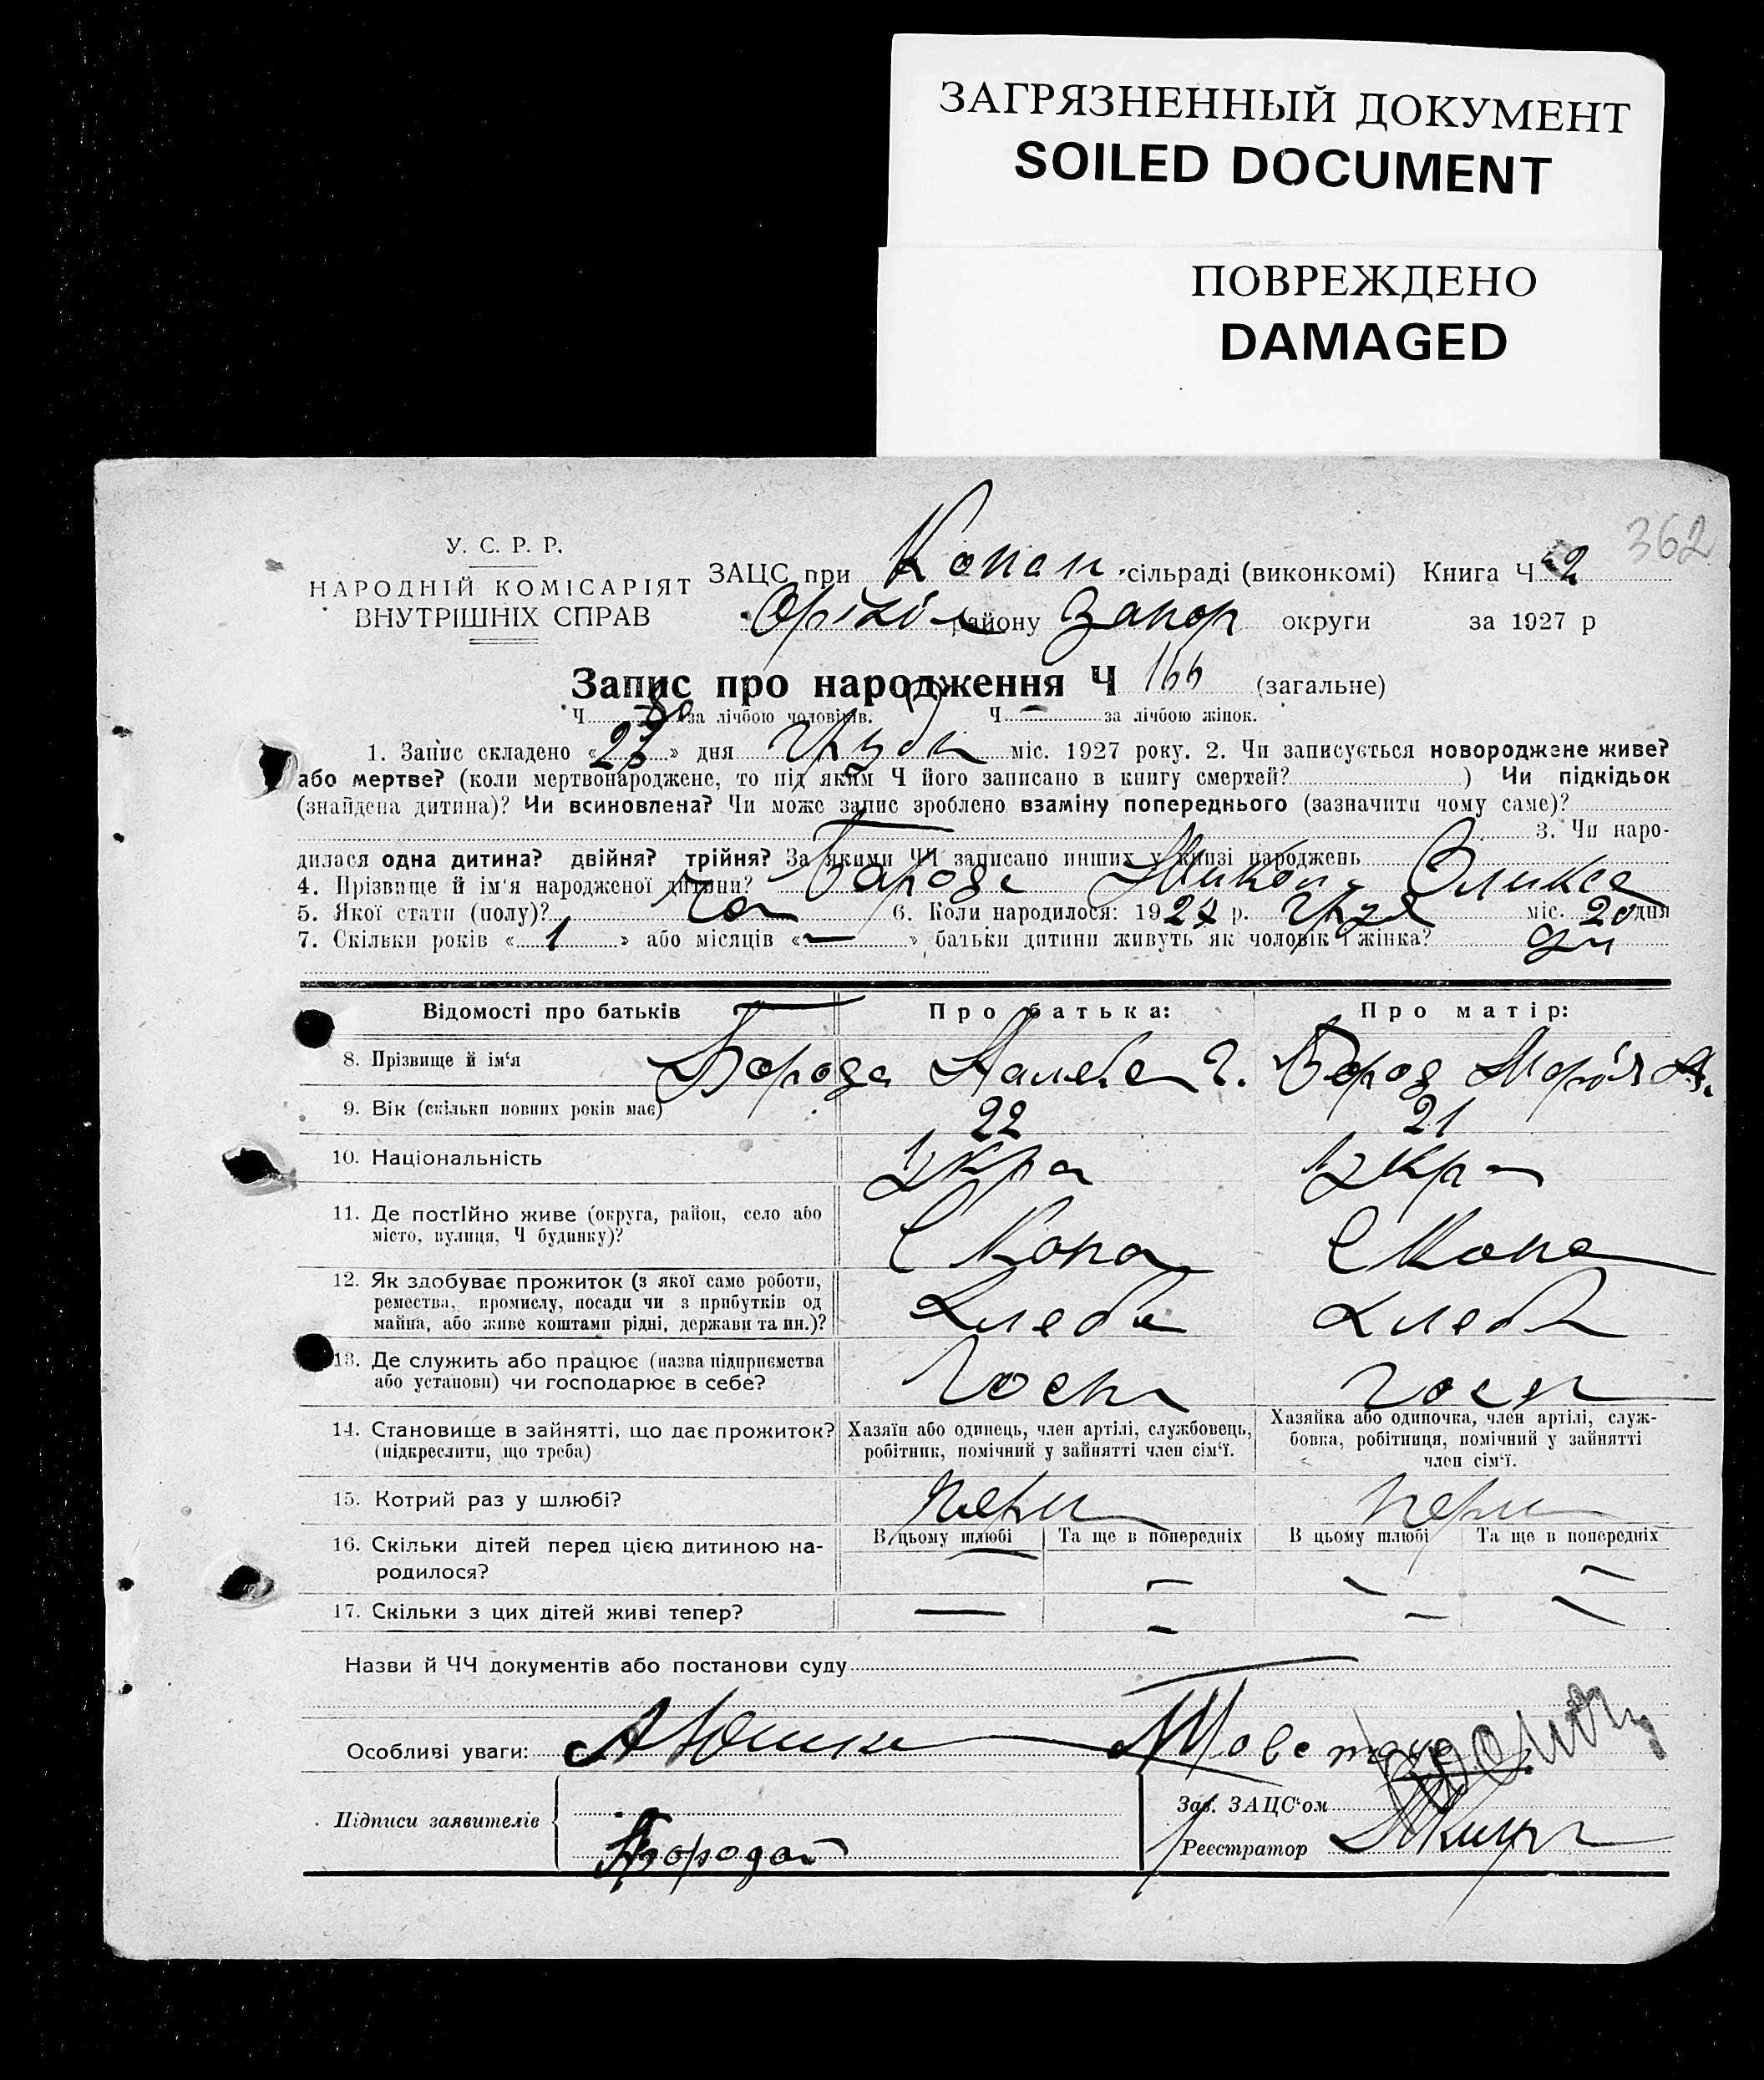 ЗАГРЯЗНЕННЫЙ ДОКУМЕНТ
SOILED DOCUMENT
ПОВРЕЖДЕНО
DAMAGED
362
У. С. Р. Р.
НАРОДНІЙ КОМІСАРІЯТ
ВНУТРІШНІХ СПРАВ
ЗАЦС при Копан сільраді (виконкомі) Книга Ч 2
Оріхів району Запор округи за 1927 р
Запис про народження Ч 166 (загальне)
Ч за лічбою чоловіків. Ч — за лічбою жінок.
1. Запис складено « » дня міс. 1927 року. 2. Чи записується новороджене живе?
або мертве? (коли мертвонароджене, то під яким Ч його записано в книгу смертей? ) Чи підкідьок
(знайдена дитина)? Чи всиновлена? Чи може запис зроблено взаміну попереднього (зазначити чому саме)?
3. Чи наро-
дилася одна дитина? двійня? трійня? За якими ЧЧ записано инших у книзі народжень
4. Прізвище й ім'я народженої дитини? Борода Микол
5. Якої стати (полу)? Чол 6. Коли народилося: 1927 р. міс. 20 дня
7. Скільки років « 1 » або місяців « — » батьки дитини живуть як чоловік і жінка?
Відомості про батьків Про батька: Про матір:
8. Прізвище й ім'я Борода Г. Бород Марія
9. Вік (скільки повних років має) 22 21
10. Національність Укра Укр
11. Де постІйно живе (округа, район, село або
місто, вулиця, Ч будинку)? С Копа С Копа
12. Як здобуває прожиток (з якої само роботи,
ремества, промислу, посади чи з прибутків од
майна, або живе коштами рідні, держави та ин.)? Хлеб Хлеб
13. Де служить або працює (назва підприємства
або установи) чи господарює в себе? Госп Госп
14. Становище в зайнятті, що дає прожиток?
(підкреслити, що треба)
Хазяїн або одинець, член артілі, службовець,
робітник, помічний у зайнятті член сім'ї.
Хазяйка або одиночка, член артілі, служ-
бовка, робітниця, помічний у зайнятті
член сім'ї.
15. Котрий раз у шлюбі? Перш Перш
16. Скільки дітей перед цією дитиною на-
родилося?
В цьому шлюбі Та ще в попередніх В цьому шлюбі Та ще в попередніх
— — — —
17. Скільки з цих дітей живі тепер? — — — —
Назви й ЧЧ документів або постанови суду
Особливі уваги:
Підписи заявителів
Зав. ЗАЦС'ом
Бородай
Реєстратор